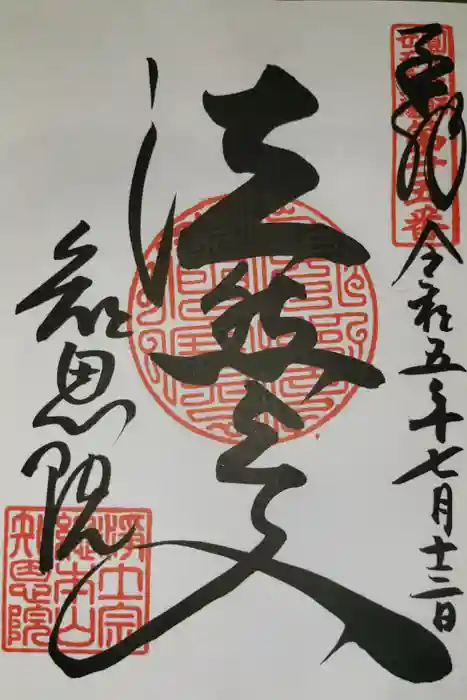 奉拝
令和五年七月十三日
法然上人
知恩院
浄土宗
總本山
知恩院